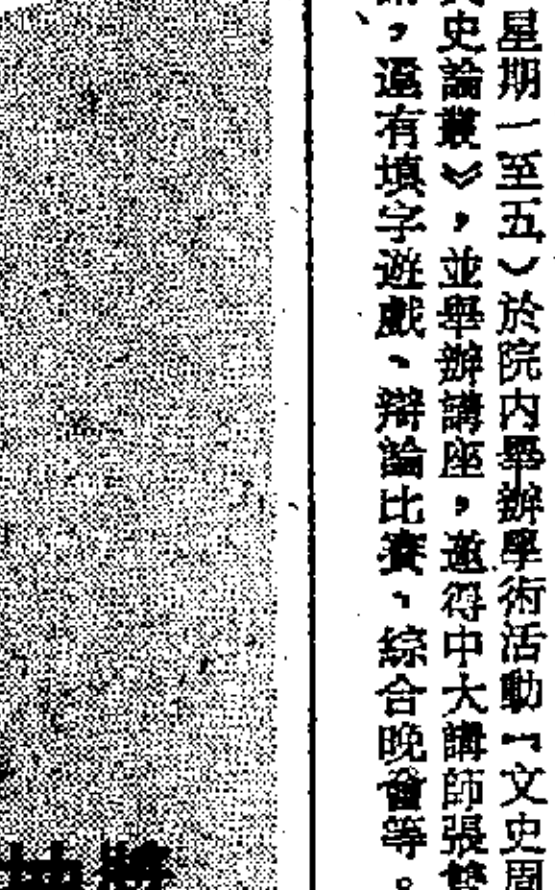 星期一至五）於院內舉辦學術活動『文史周
史論叢》，並舉辦講座，邀得中大講師張雙
，還有填字遊戲、辯論比賽、綜合晚會等。